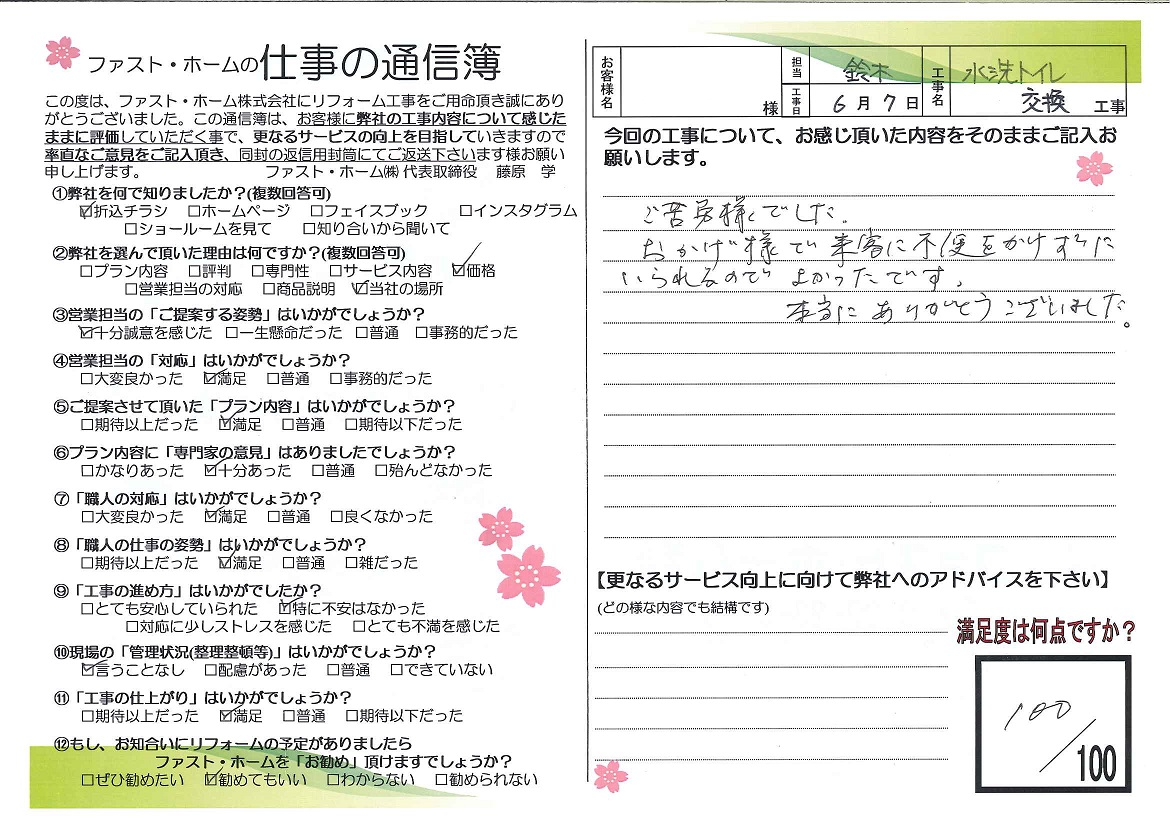 ファスト・ホームの仕事の通信簿
この度は、ファスト・ホーム株式会社にリフォーム工事をご用命頂き誠にあり
がとうございました。この通信簿は、お客様に弊社の工事内容について感じた
ままに評価していただく事で、更なるサービスの向上を目指していきますので
率直なご意見をご記入頂き、同封の返信用封筒にてご返送下さいます様お願い
申し上げます。 ファスト・ホーム㈱ 代表取締役 藤原 学
①弊社を何で知りましたか？(複数回答可)
☑折込チラシ □ホームページ □フェイスブック □インスタグラム
□ショールームを見て □知り合いから聞いて
②弊社を選んで頂いた理由は何ですか？(複数回答可)
□プラン内容 □評判 □専門性 □サービス内容 ☑価格
□営業担当の対応 □商品説明 ☑当社の場所
③営業担当の「ご提案する姿勢」はいかがでしょうか？
☑十分誠意を感じた □一生懸命だった □普通 □事務的だった
④営業担当の「対応」はいかがでしょうか？
□大変良かった ☑満足 □普通 □事務的だった
⑤ご提案させて頂いた「プラン内容」はいかがでしょうか？
□期待以上だった ☑満足 □普通 □期待以下だった
⑥プラン内容に「専門家の意見」はありましたでしょうか？
□かなりあった ☑十分あった □普通 □殆んどなかった
⑦「職人の対応」はいかがでしょうか？
□大変良かった ☑満足 □普通 □良くなかった
⑧「職人の仕事の姿勢」はいかがでしょうか？
□期待以上だった ☑満足 □普通 □雑だった
⑨「工事の進め方」はいかがでしたか？
□とても安心していられた ☑特に不安はなかった
□対応に少しストレスを感じた □とても不満を感じた
⑩現場の「管理状況(整理整頓等)」はいかがでしょうか？
☑言うことなし □配慮があった □普通 □できていない
⑪「工事の仕上がり」はいかがでしょうか？
□期待以上だった ☑満足 □普通 □期待以下だった
⑫もし、お知合いにリフォームの予定がありましたら
ファスト・ホームを「お勧め」頂けますでしょうか？
□ぜひ勧めたい ☑勧めてもいい □わからない □勧められない
お客様名 様 担当 鈴木 工事日 6月7日 工事名 水洗トイレ交換 工事
今回の工事について、お感じ頂いた内容をそのままご記入お
願いします。
ご苦労様でした。
おかげ様で来客に不便をかけずに
いられるのでよかったです。
本当にありがとうございました。
【更なるサービス向上に向けて弊社へのアドバイスを下さい】
(どの様な内容でも結構です)
満足度は何点ですか？
100/100